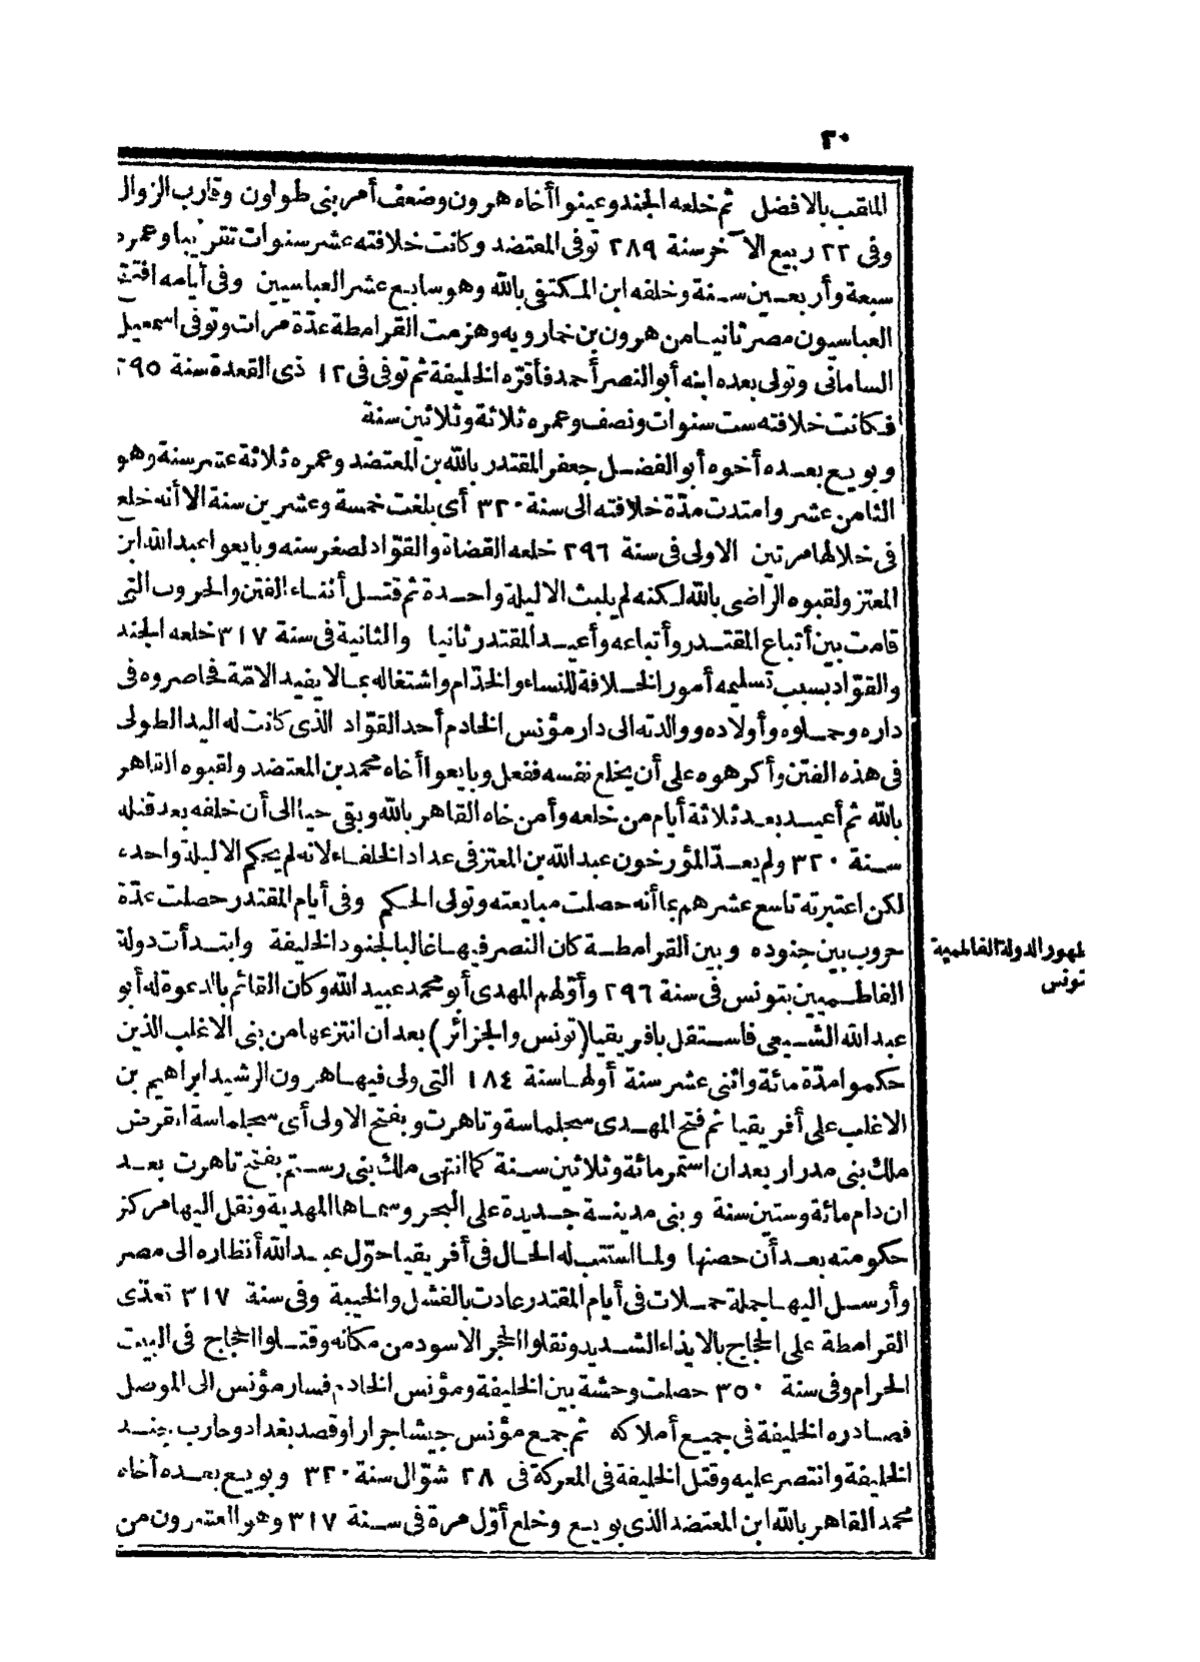 ٣٠
الملقب بالافضل ثم خلعه الجند وعينوا أخاه هرون وضعف أمر بنى طولون وقارب الزوال
وفى ٢٢ ربيع الآخر سنة ٢٨٩ توفى المعتضد وكانت خلافته عشر سنوات تقريبا وعمره
سبعة وأربعين سنة وخلفه ابن المكتفى بالله وهو سابع عشر العباسيين وفى أيامه افتتح
العباسيون مصر ثانيا من هرون بن خمارويه وهزمت القرامطة عدّة مرات وتوفى اسمعيل
السامانى وتولى بعده ابنه أبو النصر أحمد فأقرّه الخليفة ثم توفى فى ١٢ ذى القعدة سنة ٢٩٥
فكانت خلافته ست سنوات ونصف وعمره ثلاثة وثلاثين سنة
وبويع بعده أخوه أبو الفضل جعفر المقتدر بالله بن المعتضد وعمره ثلاثة عشر سنة وهو
الثامن عشر وامتدت مدّة خلافته الى سنة ٣٢٠ أى بلغت خمسة وعشرين سنة الا أنه خلع
فى خلالها مرتين الاولى فى سنة ٢٩٦ خلعه القضاة والقوّاد لصغر سنه وبايعوا عبد الله ابن
المعتز ولقبوه الراضى بالله لكنه لم يلبث الا ليلة واحدة ثم قتل أثناء الفتن والحروب التى
قامت بين أتباع المقتدر وأتباعه وأعيد المقتدر ثانيا والثانية فى سنة ٣١٧ خلعه الجند
والقوّاد بسبب تسليمه أمور الخلافة للنساء والخدّام واشتغاله بما لا يفيد الامّة فحاصروه فى
داره وحملوه وأولاده ووالدته الى دار مؤنس الخادم أحد القوّاد الذى كانت له اليد الطولى
فى هذه الفتن وأكرهوه على أن يخلع نفسه ففعل وبايعوا أخاه محمد بن المعتضد ولقبوه القاهر
بالله ثم أعيد بعد ثلاثة أيام من خلعه وأمن خاه القاهر بالله وبقى حيا الى أن خلفه بعد قتله
سنة ٣٢٠ ولم يعدّ المؤرخون عبد الله بن المعتز فى عداد الخلفاء لانه لم يحكم الا ليلة واحدة
لكن اعتبرته تاسع عشرهم بما أنه حصلت مبايعته وتولى الحكم وفى أيام المقتدر حصلت عدّة
حروب بين جنوده وبين القرامطة كان النصر فيها غالبا لجنود الخليفة وابتدأت دولة
ظهور الدولة الفاطمية
تونس
الفاطميين بتونس فى سنة ٢٩٦ وأوّلهم المهدى أبو محمد عبيد الله وكان القائم بالدعوة له أبو
عبد الله الشيعى فاستقل بافريقيا (تونس والجزائر) بعد ان انتزعها من بنى الاغلب الذين
حكموا مدّة مائة واثنى عشر سنة أولها سنة ١٨٤ التى ولى فيها هرون الرشيد ابراهيم بن
الاغلب على أفريقيا ثم فتح المهدى سجلماسة وتاهرت وبفتح الاولى أى سجلماسة انقرض
ملك بنى مدرار بعد ان استمر مائة وثلاثين سنة كما انتهى ملك بنى رستم بفتح تاهرت بعد
ان دام مائة وستين سنة وبنى مدينة جديدة على البحر وسماها المهدية ونقل اليها مركز
حكومته بعد أن حصنها ولما استتب له الحال فى أفريقيا حوّل عبد الله أنظاره الى مصر
وأرسل اليها جملة حملات فى أيام المقتدر عادت بالفشل والخيبة وفى سنة ٣١٧ تعدّى
القرامطة على الحجاج بالايذاء الشديد ونقلوا الحجر الاسود من مكانه وقتلوا الحجاج فى البيت
الحرام وفى سنة ٣٥٠ حصلت وحشة بين الخليفة ومؤنس الخادم فسار مؤنس الى الموصل
فصادره الخليفة فى جميع أملاكه ثم جمع مؤنس جيشا جرارا وقصد بغداد وحارب جند
الخليفة وانتصر عليه وقتل الخليفة فى المعركة فى ٢٨ شوّال سنة ٣٢٠ وبويع بعده أخاه
محمد القاهر بالله ابن المعتضد الذى بويع وخلع أوّل مرة فى سنة ٣١٧ وهو العشرون من